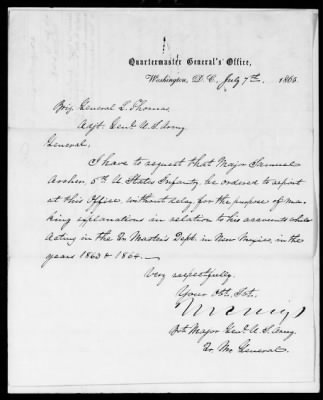 Quartermaster General's Office,
Washington, D. C. July 7th. 1865.
Brig. General L. Thomas,
Adjt. Genl. U. S. Army
General,
I have to request that Major Samuel
Archer, 5th U. States Infantry, be ordered to report
at this Office, without delay, for the purpose of ma-
king explanations in relation to his accounts while
acting in the Qr. Master's Dept. in New Mexico, in the
years 1863 & 1864.
Very respectfully,
Your Obt. Svt.
Bvt. Major Genl. U. S. Army.
Qr. Mr. General.